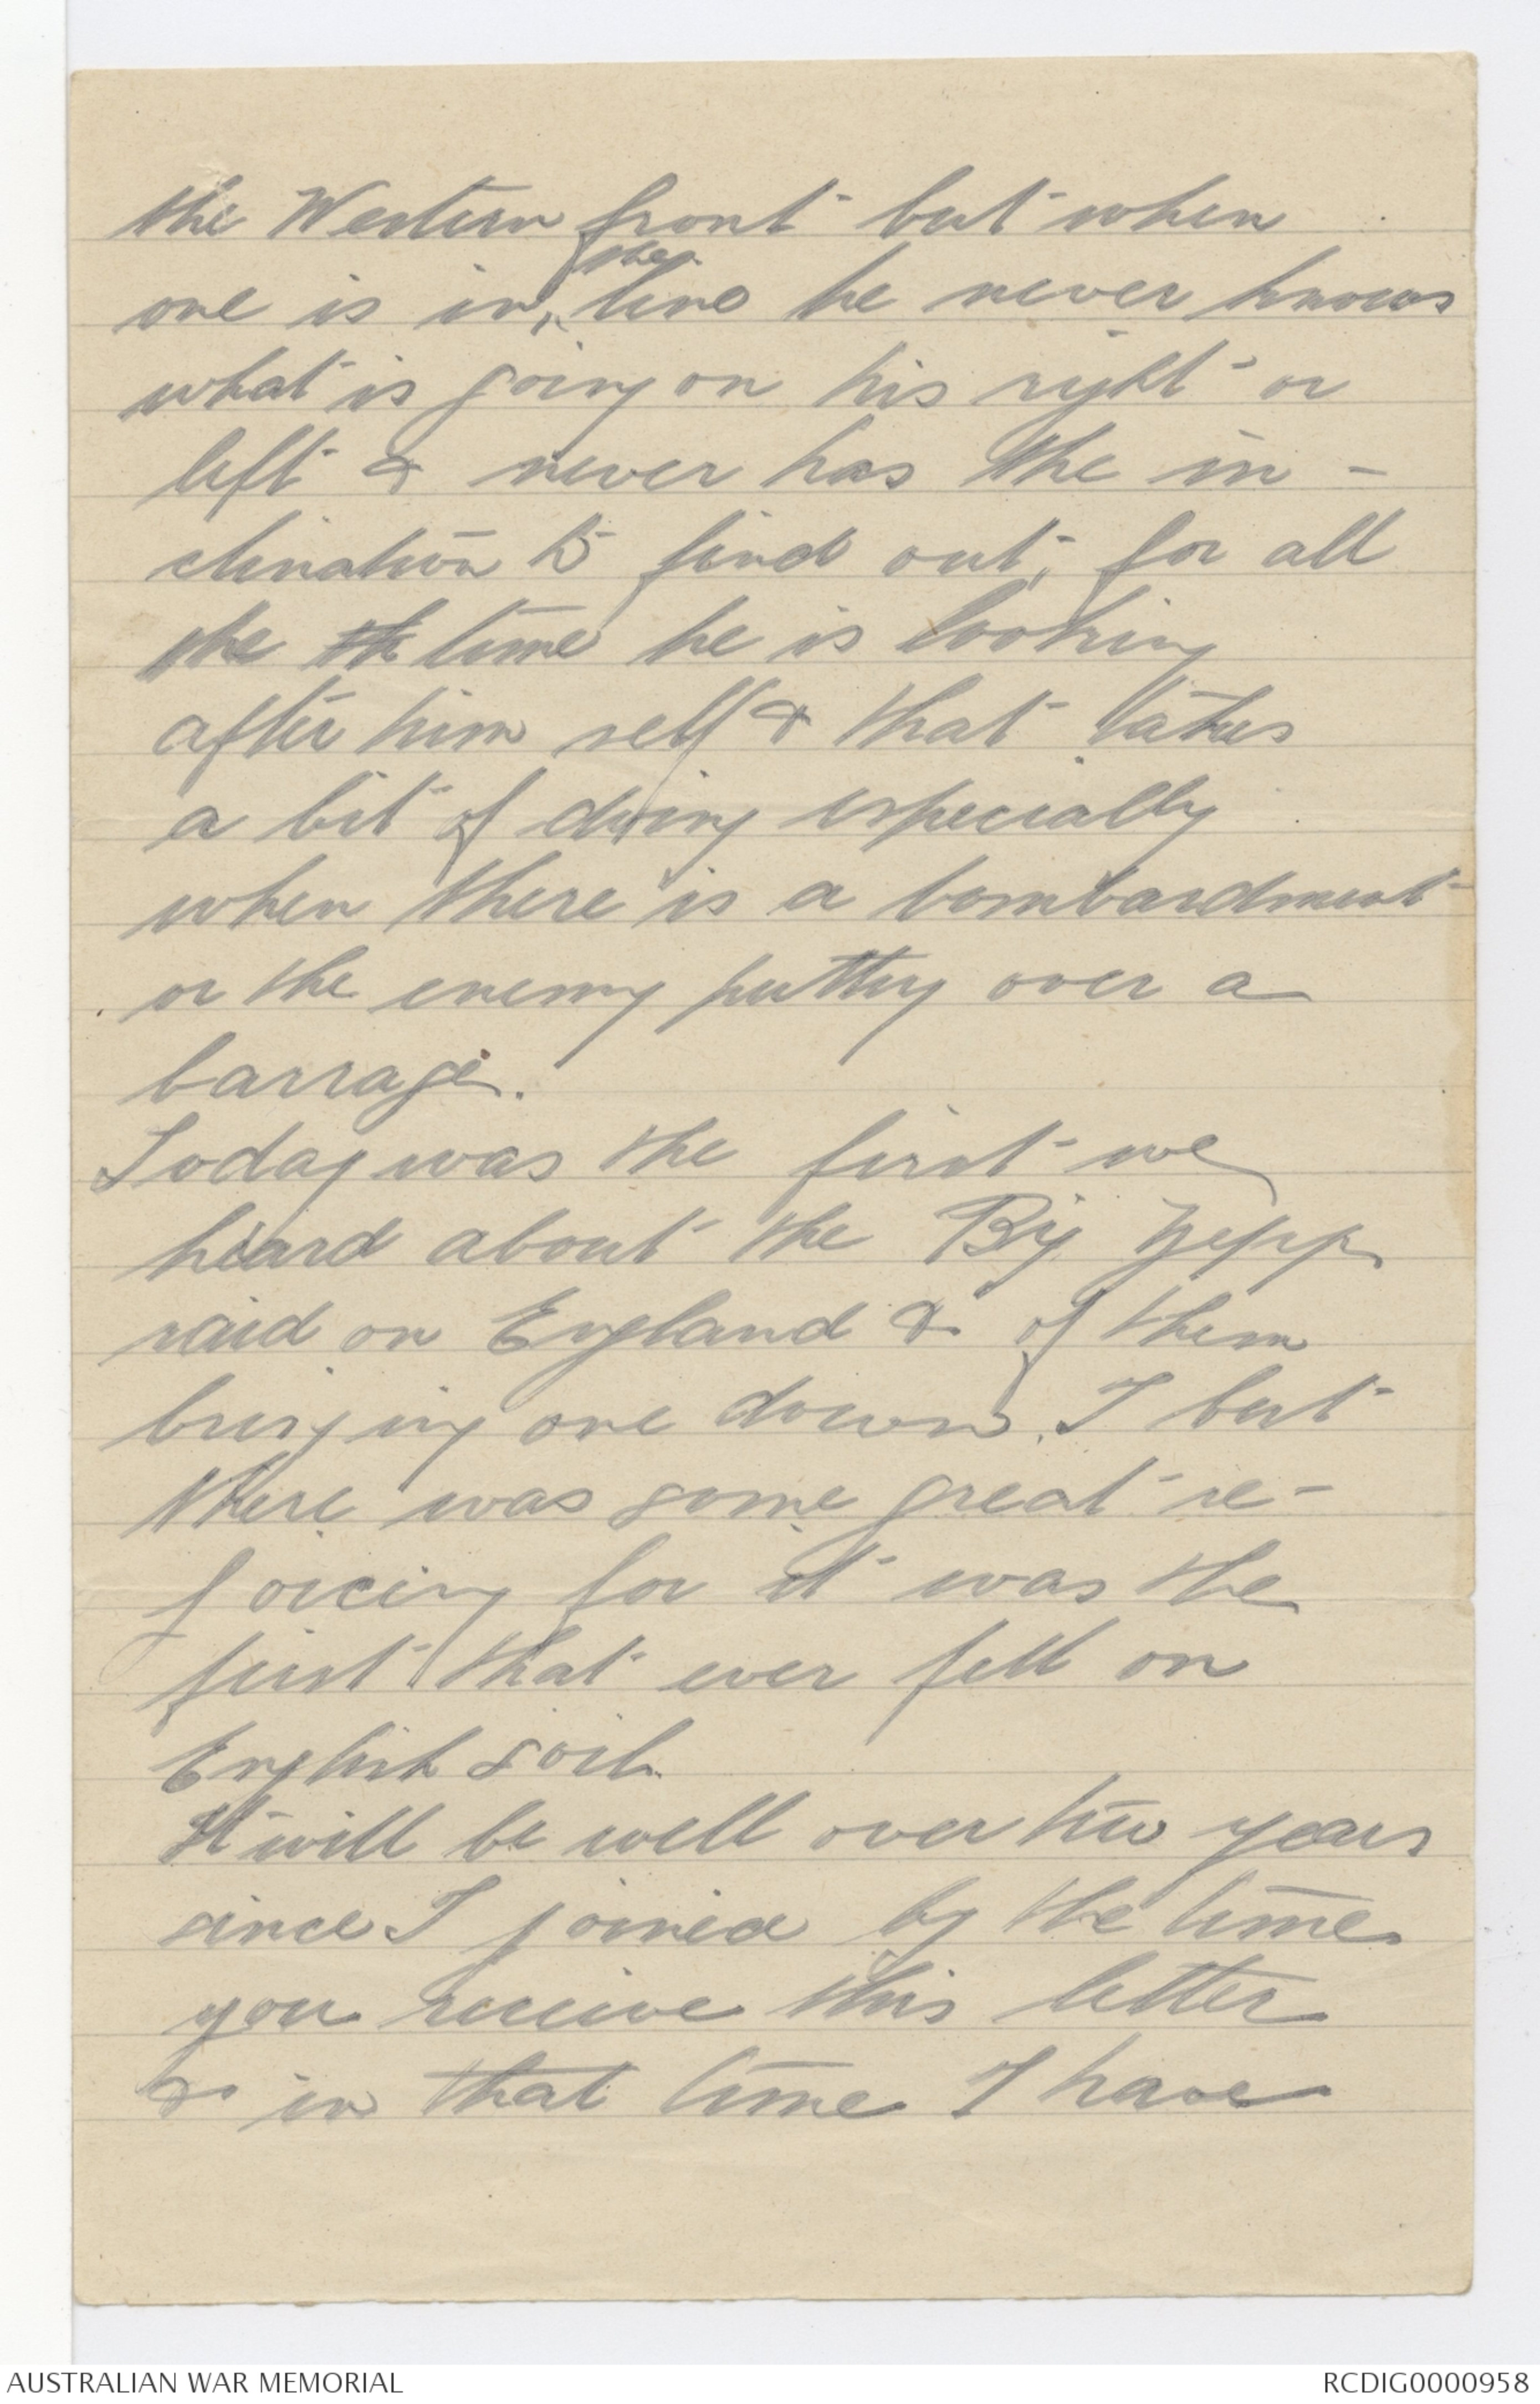 the Western front but when
one is in the line he never knows
what is going on his right or
left & never has the in-
clination to find out, for all
the th time he is looking
after him self & that takes
a bit of doing especially
when there is a bombardment
or the enemy putting over a
barrage.
Today was the first we
heard about the Big Zepp
raid on England & of them
bringing one down. I bet
there was some great re-
joicing for it was the
first that ever fell on
English soil.
It will be well over two years
since I joined by the time
you receive this letter
& in that time I have
AUSTRALIAN WAR MEMORIAL
RCDIG0000958